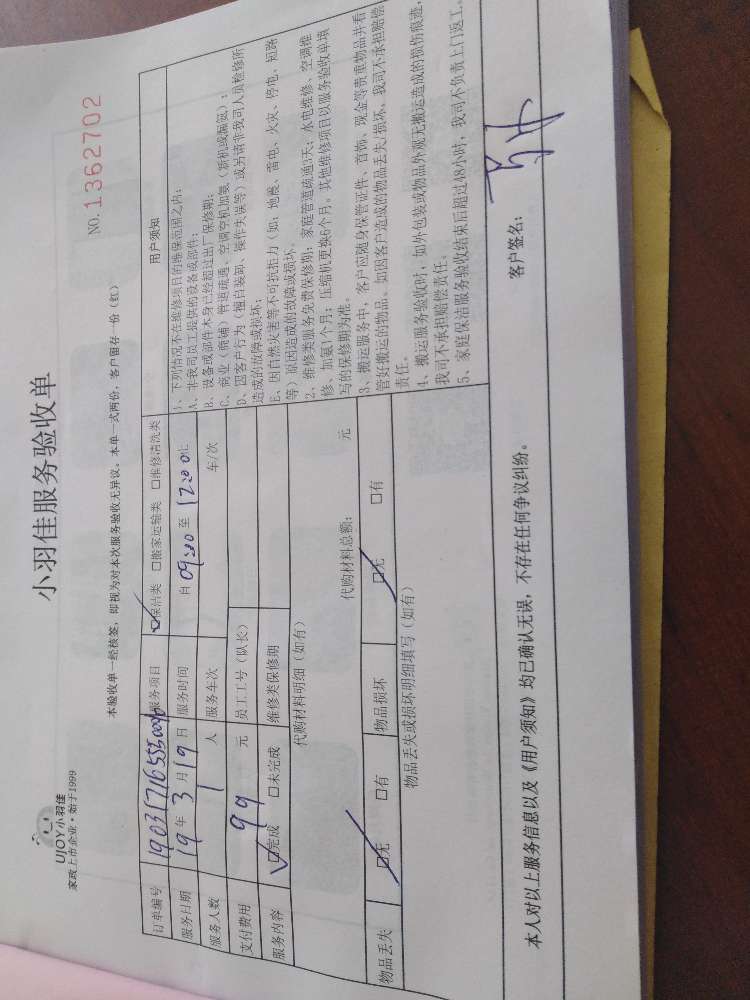 UJOY小羽佳
家政上市企业·始于1999
小羽佳服务验收单
NO.1362702
本验收单一经核签，即视为对本次服务验收无异议。本单一式两份，客户留存一份（红）
订单编号 服务项目 ☑保洁类 □搬家运输类 □维修清洗类
服务日期 19年3月19日 服务时间 自09:00至12:00止
服务人数 1 人 服务车次 车/次
支付费用 99 元 员工工号（队长）
服务内容 ☑完成 □未完成 维修类保修期
代购材料明细（如有）
代购材料总额： 元
物品丢失 ☑无 □有 物品损坏 ☑无 □有
物品丢失或损坏明细填写（如有）
用户须知
1、下列情况不在维修项目的维保范围之内：
A、非我司员工提供的设备或部件；
B、设备或部件本身已经超过出厂保修期；
C、商业（商铺）管道疏通、空调空机加氨（新机或漏氨）；
D、因客户行为（擅自装卸、操作失误等）或另请非我司人员检修所
造成的故障或损坏；
E、因自然灾害等不可抗拒力（如：地震、雷电、火灾、停电、短路
等）原因造成的故障或损坏。
2、维修类服务免费保修期：家庭管道疏通3天；水电维修、空调维
修、加氨1个月；压缩机更换6个月。其他维修项目以服务验收单填
写的保修期为准。
3、搬运服务中，客户应随身保管证件、首饰、现金等贵重物品共看
管好搬运的物品，如因客户造成的物品丢失/损坏，我司不承担赔偿
责任。
4、搬运服务验收时，如外包装或物品外观无搬运造成的损伤痕迹，
我司不承担赔偿责任。
5、家庭保洁服务验收结束后超过48小时，我司不负责上门返工。
本人对以上服务信息以及《用户须知》均已确认无误，不存在任何争议纠纷。
客户签名：